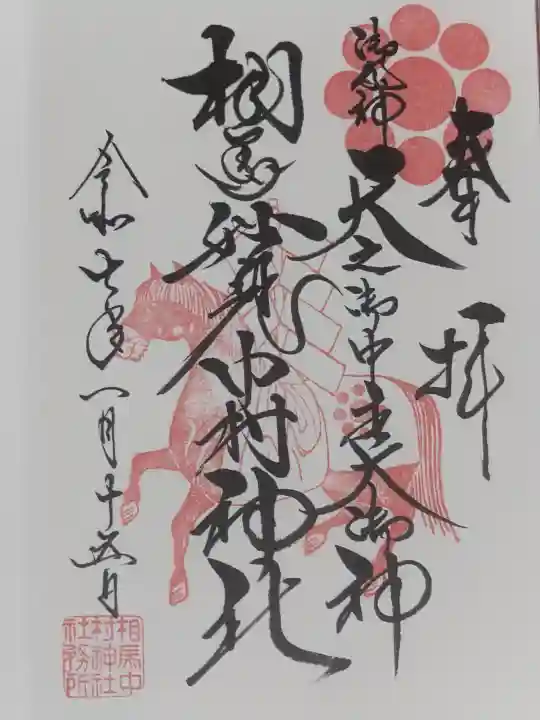 奉拝
御祭神 天之御中主大御神
相馬 中村神社
令和七年八月十五日
相馬中
村神社
社務所